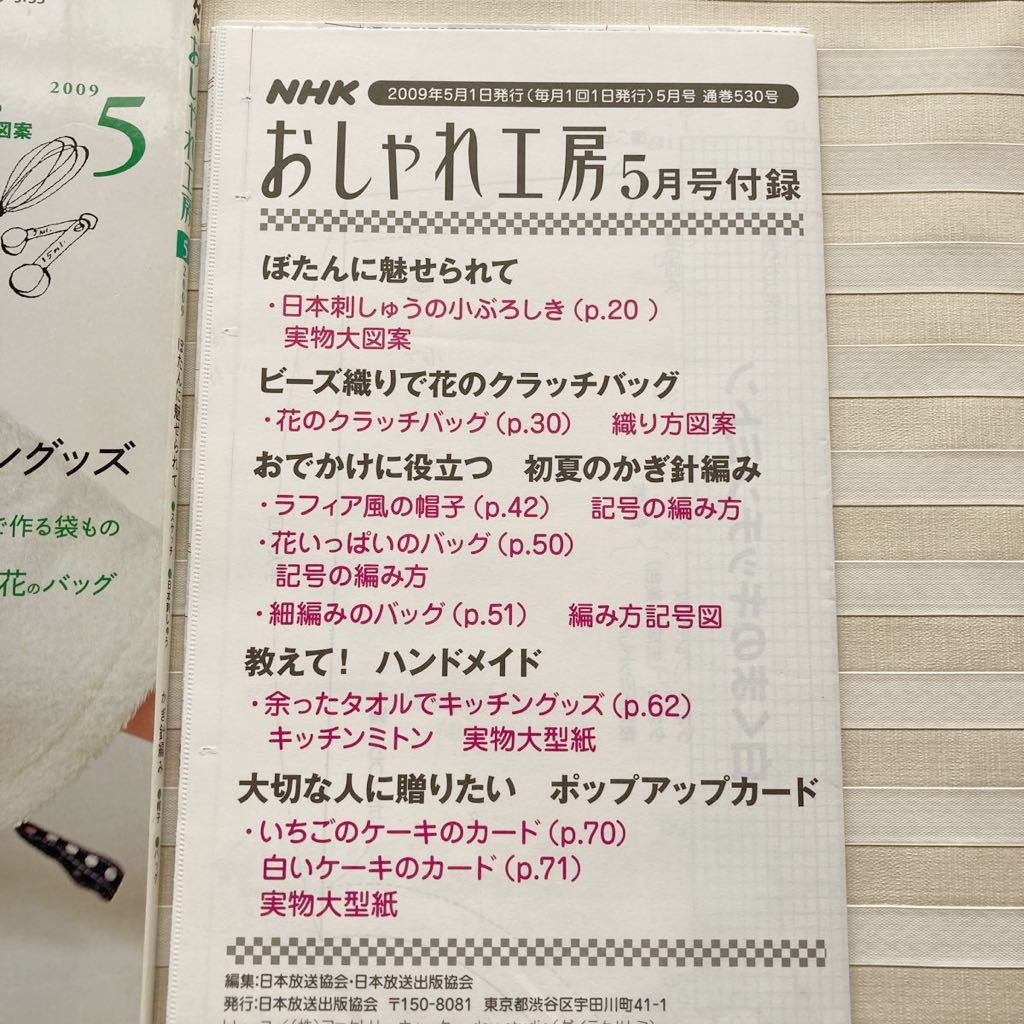 2009
5
図案
ml.
15ml.
ングッズ
で作る袋もの
花のバッグ
おしゃれ工房 5 2009 ぼたんに魅せられて ●スケッチ ●日本刺しゅう かぎ針編み ●帽子 ●バッグ
NHK 2009年5月1日発行(毎月1回1日発行)5月号 通巻530号
おしゃれ工房5月号付録
ぼたんに魅せられて
・日本刺しゅうの小ぶろしき(p.20 )
実物大図案
ビーズ織りで花のクラッチバッグ
・花のクラッチバッグ(p.30) 織り方図案
おでかけに役立つ 初夏のかぎ針編み
・ラフィア風の帽子(p.42) 記号の編み方
・花いっぱいのバッグ(p.50)
記号の編み方
・細編みのバッグ(p.51) 編み方記号図
教えて! ハンドメイド
・余ったタオルでキッチングッズ(p.62)
キッチンミトン 実物大型紙
大切な人に贈りたい ポップアップカード
・いちごのケーキのカード(p.70)
白いケーキのカード(p.71)
実物大型紙
編集:日本放送協会・日本放送出版協会
発行:日本放送出版協会 〒150-8081 東京都渋谷区宇田川町41-1